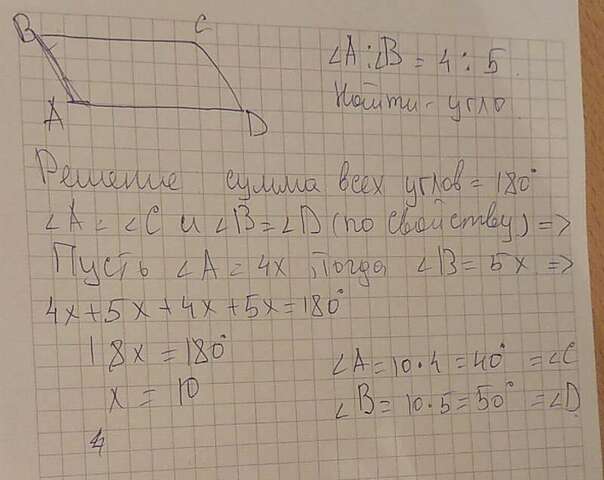 B C
A D
∠A : ∠B = 4 : 5.
Найти - угло
Решение: сумма всех углов = 180°
∠A = ∠C и ∠B = ∠D (по свойству) =>
Пусть ∠A = 4x, тогда ∠B = 5x =>
4x + 5x + 4x + 5x = 180°
18x = 180°
x = 10
∠A = 10 · 4 = 40° = ∠C
∠B = 10 · 5 = 50° = ∠D
4